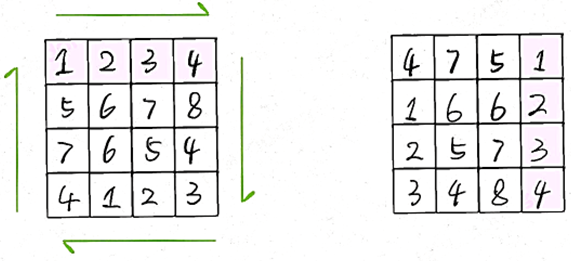 1 2 3 4
5 6 7 8
7 6 5 4
4 1 2 3
4 7 5 1
1 6 6 2
2 5 7 3
3 4 8 4